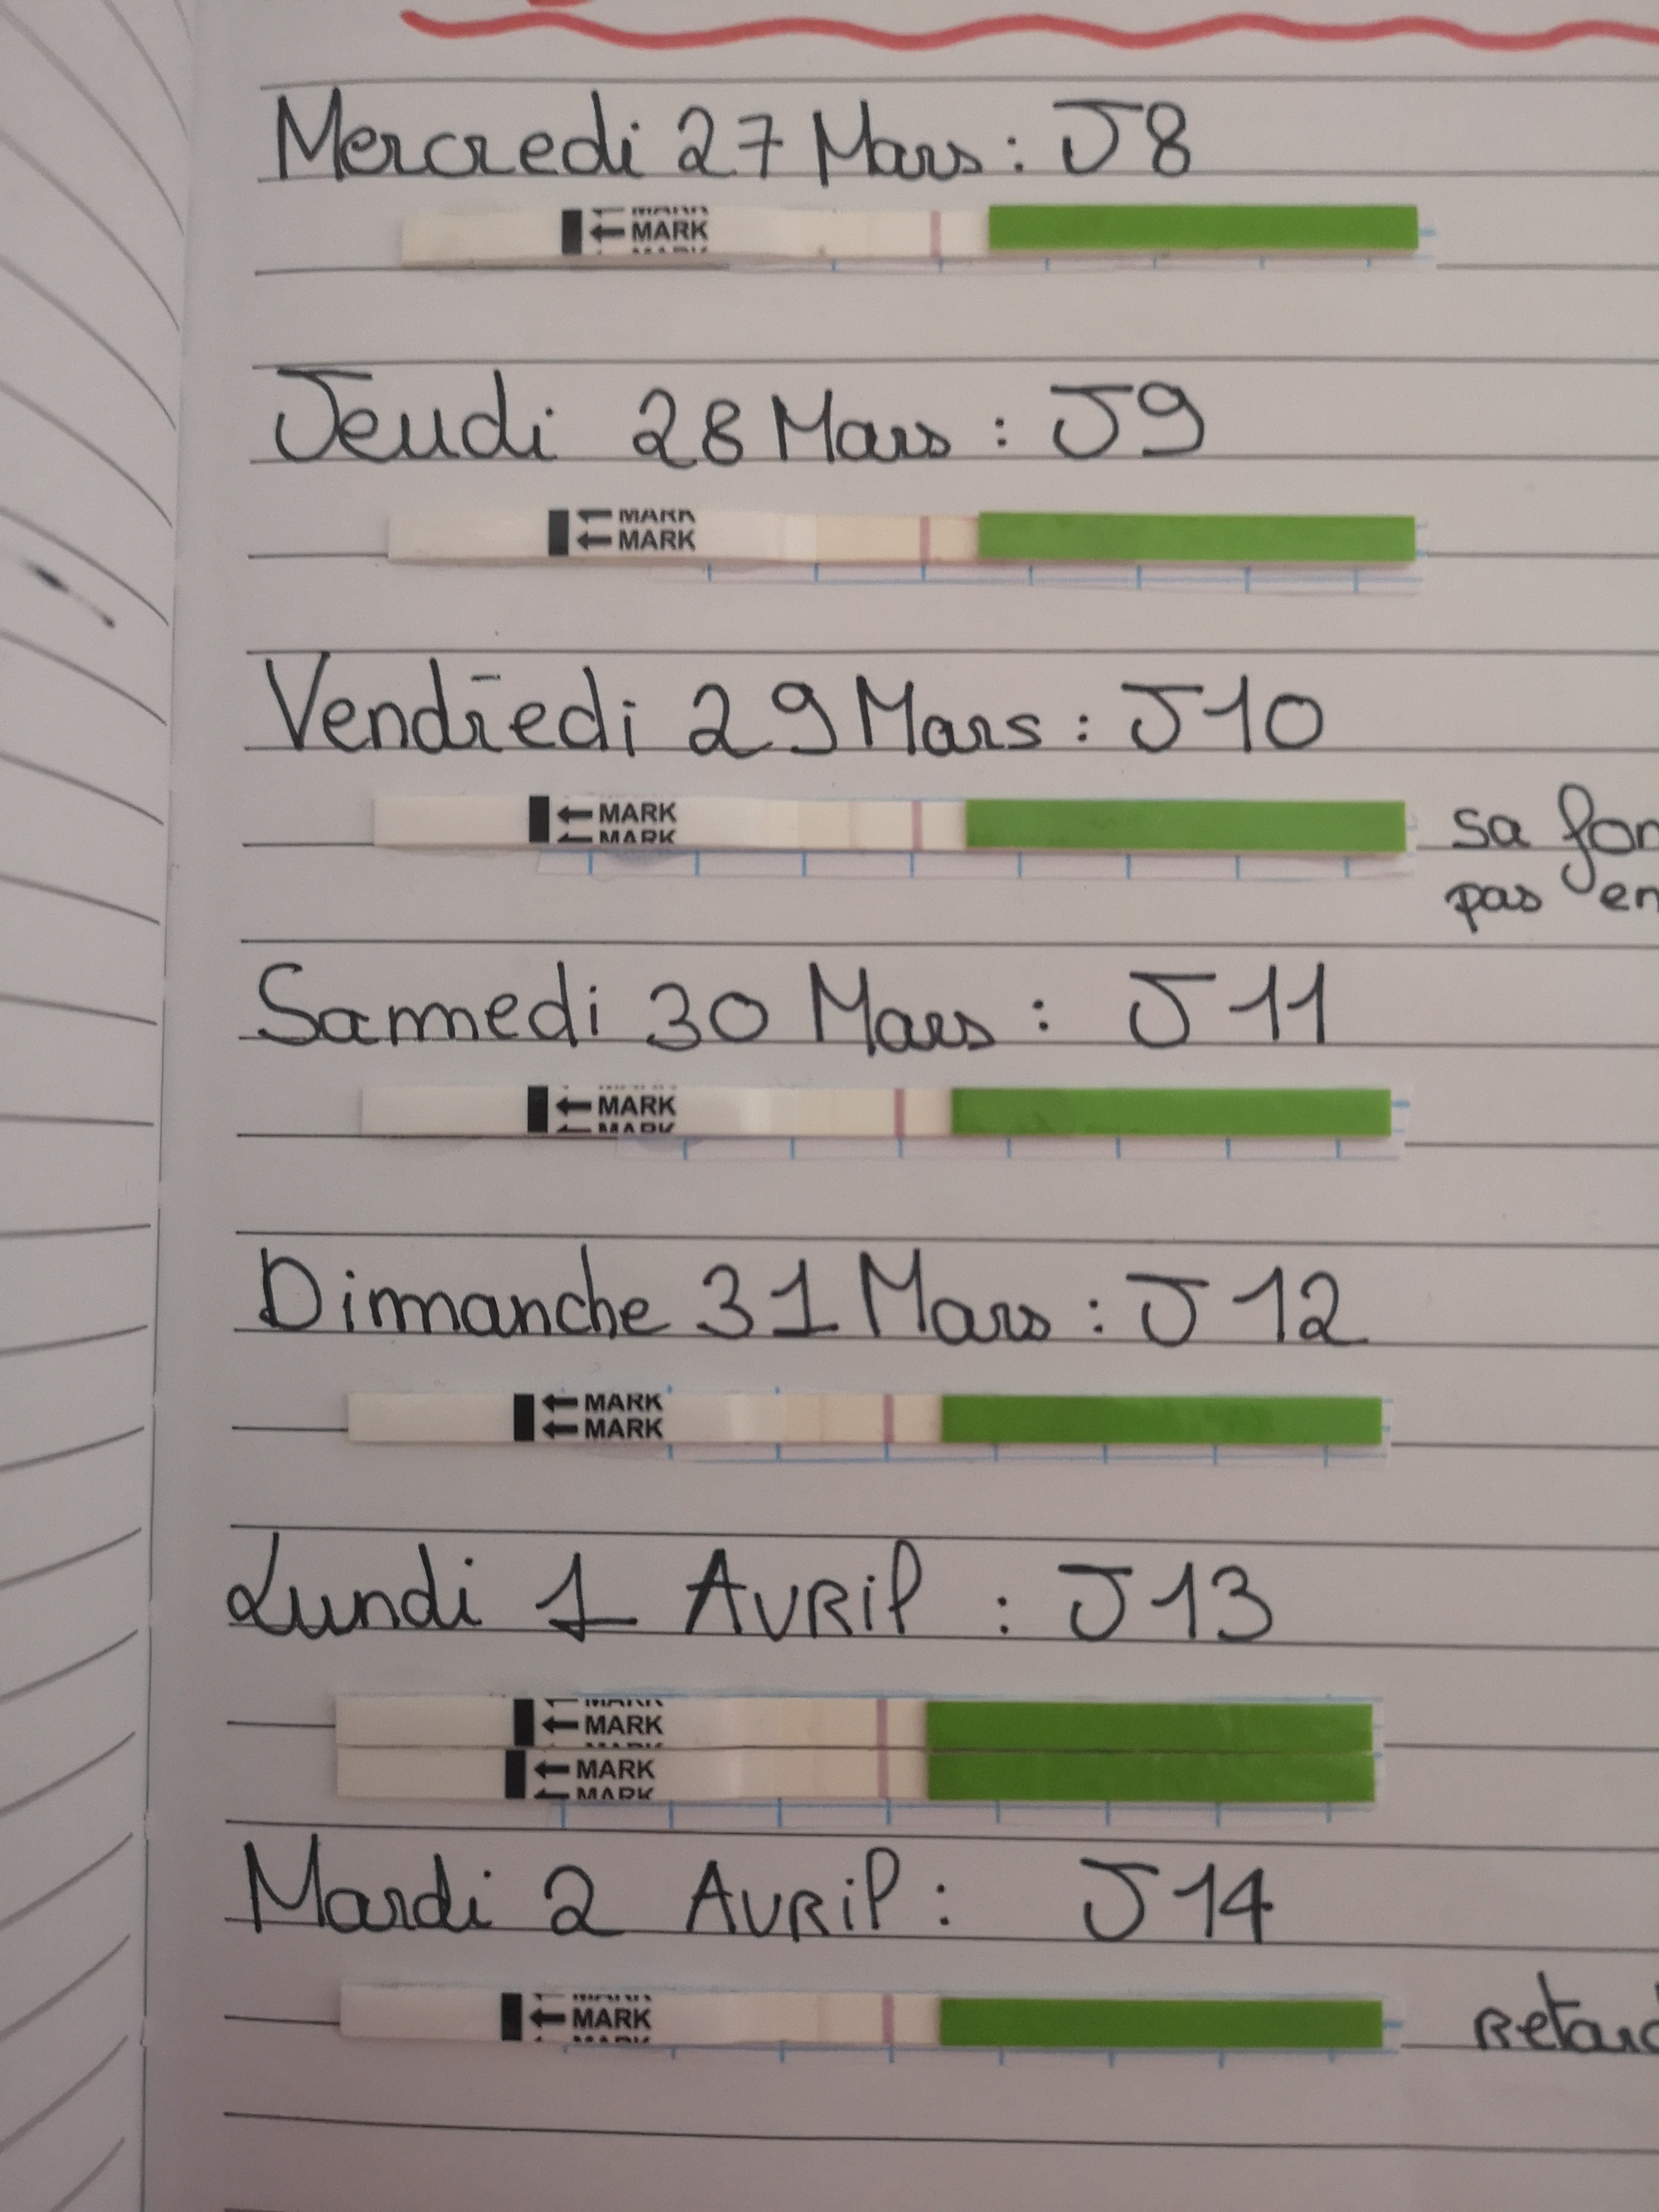 Mercredi 27 Mars : J8
MARK
MARK
MARK
Jeudi 28 Mars : J9
MARK
MARK
Vendredi 29 Mars : J10
MARK
MARK
sa
pas
Samedi 30 Mars : J11
MARK
MARK
Dimanche 31 Mars : J12
MARK
MARK
Lundi 1 Avril : J13
MARK
MARK
MARK
MARK
MARK
Mardi 2 Avril : J14
MARK
MARK
MARK